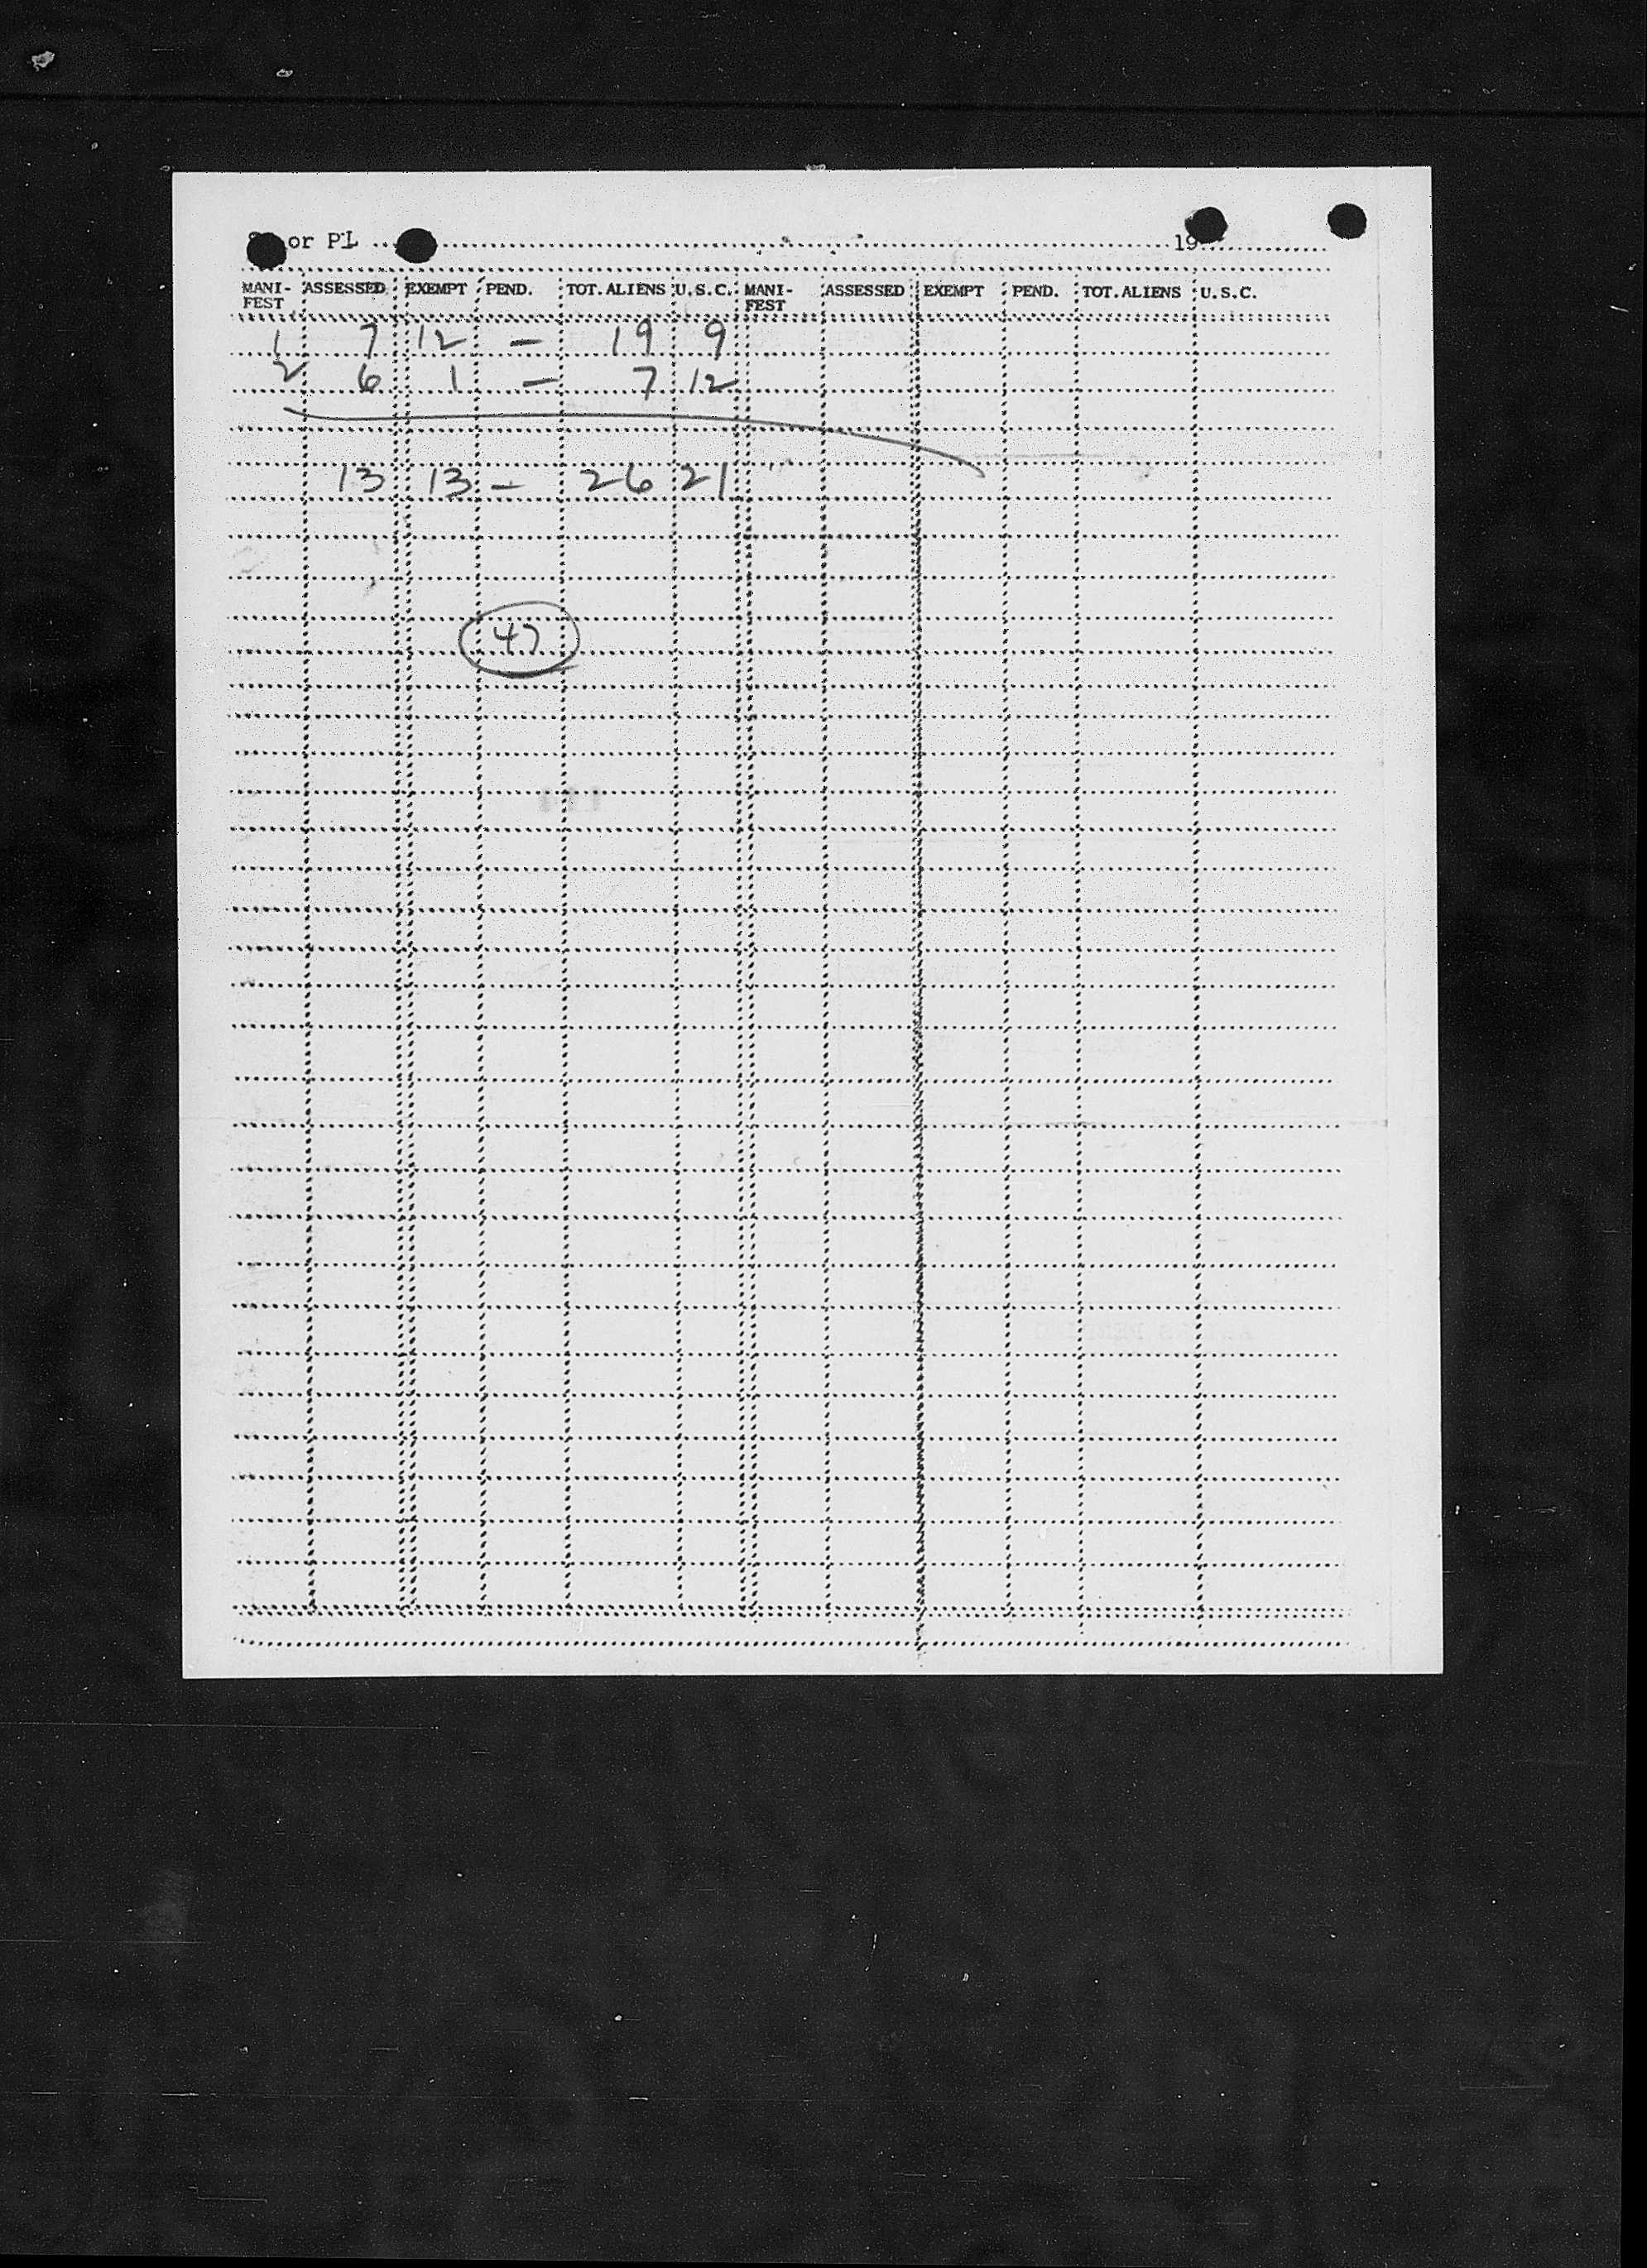 or PL 19
MANI-FEST ASSESSED EXEMPT PEND. TOT. ALIENS U.S.C. MANI-FEST ASSESSED EXEMPT PEND. TOT. ALIENS U.S.C.
1 7 12 - 19 9
2 6 1 - 7 12
13 13 - 26 21
47